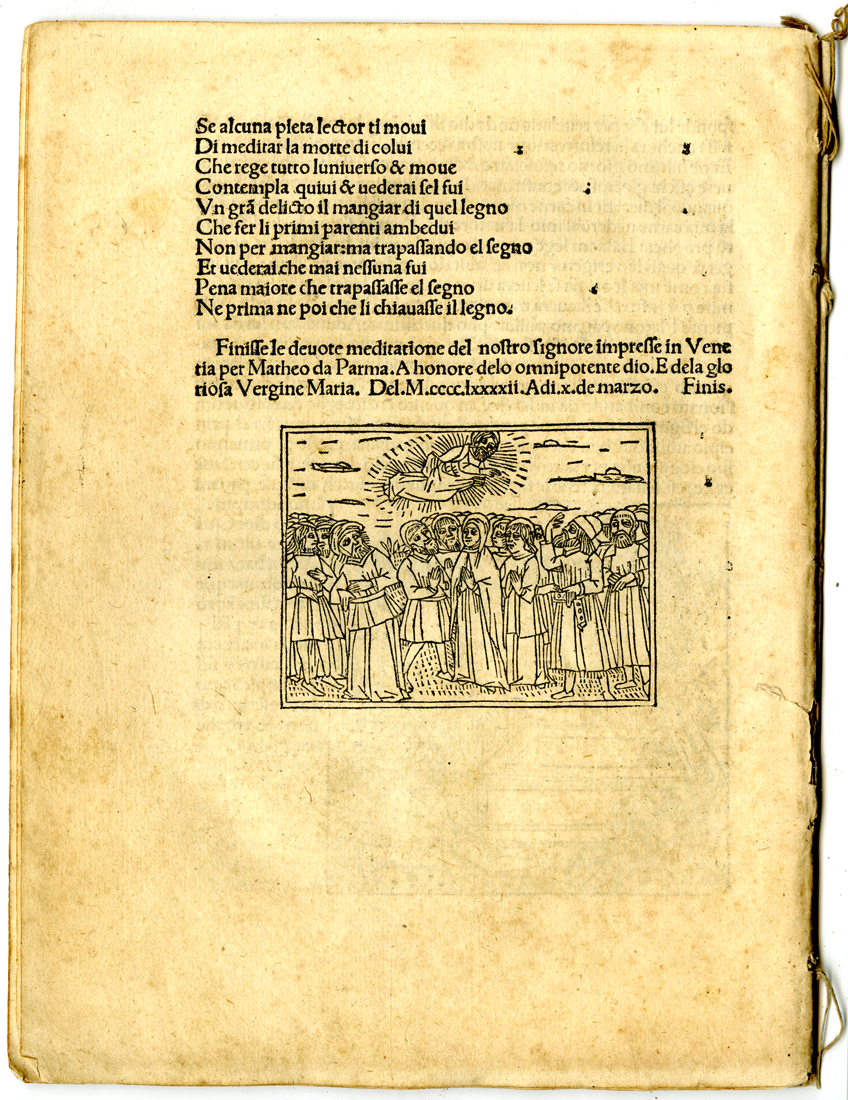 Se alcuna pieta lector ti moui
Di meditar la morte di colui
Che rege tutto luniuerſo & moue
Contempla quiui & uederai ſel fui
Vn grã delicto il mangiar di quel legno
Che fer li primi parenti ambedui
Non per mangiar:ma trapaſſando el ſegno
Et uederai che mai neſſuna fui
Pena maiore che trapaſſaſſe el ſegno
Ne prima ne poi che li chiauaſſe il legno.
Finiſſe le deuote meditatione del noſtro ſignore impreſſe in Vene
tia per Matheo da Parma. A honore delo omnipotente dio. E dela glo
rioſa Vergine Maria. Del. M.cccc.lxxxxii. Adi.x.de marzo. Finis.